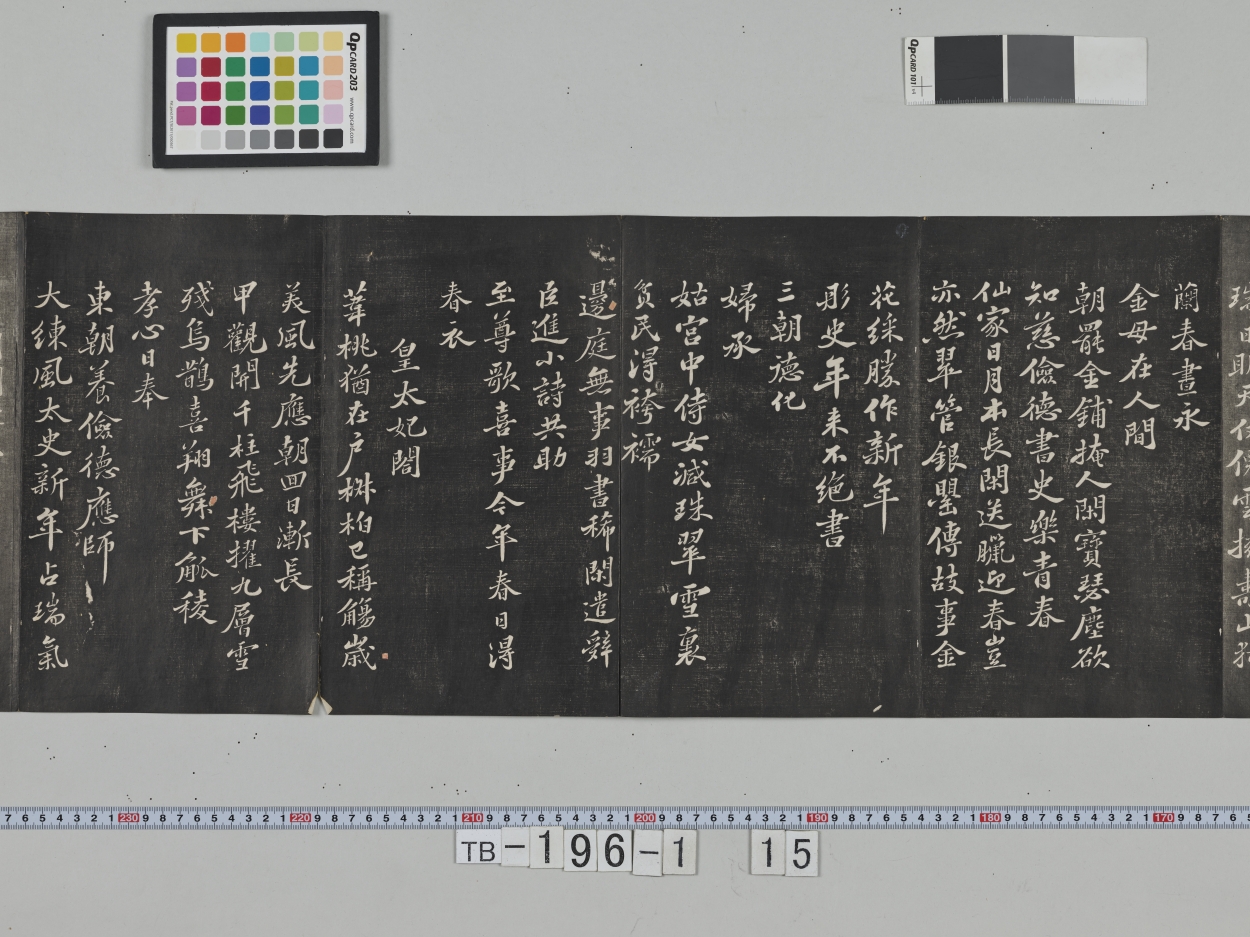 蘭春晝永
金母在人間
朝罷金鋪掩人閑寶瑟塵欲
知慈儉德書史樂青春
仙家日月本長閑送臘迎春豈
亦然翠管銀罌傳故事金
花綵勝作新年
彤史年来不絕書
三朝德化
婦承
姑宮中侍女減珠翠雪裏
貧民淂袴襦
邊庭無事羽書稀閑遣辭
臣進小詩共助
至尊歌喜事今年春日淂
春衣
皇太妃閣
葦桃猶在戶椒柏已稱觴歲
美風先應朝回日漸長
甲觀開千柱飛樓擢九層雪
殘烏鵲喜翔舞下觚稜
孝心日奉
東朝養儉德應師
大練風太史新年占瑞氣
QpCARD 203
www.qpcard.com
QpCARD 101
TB-196-1 15